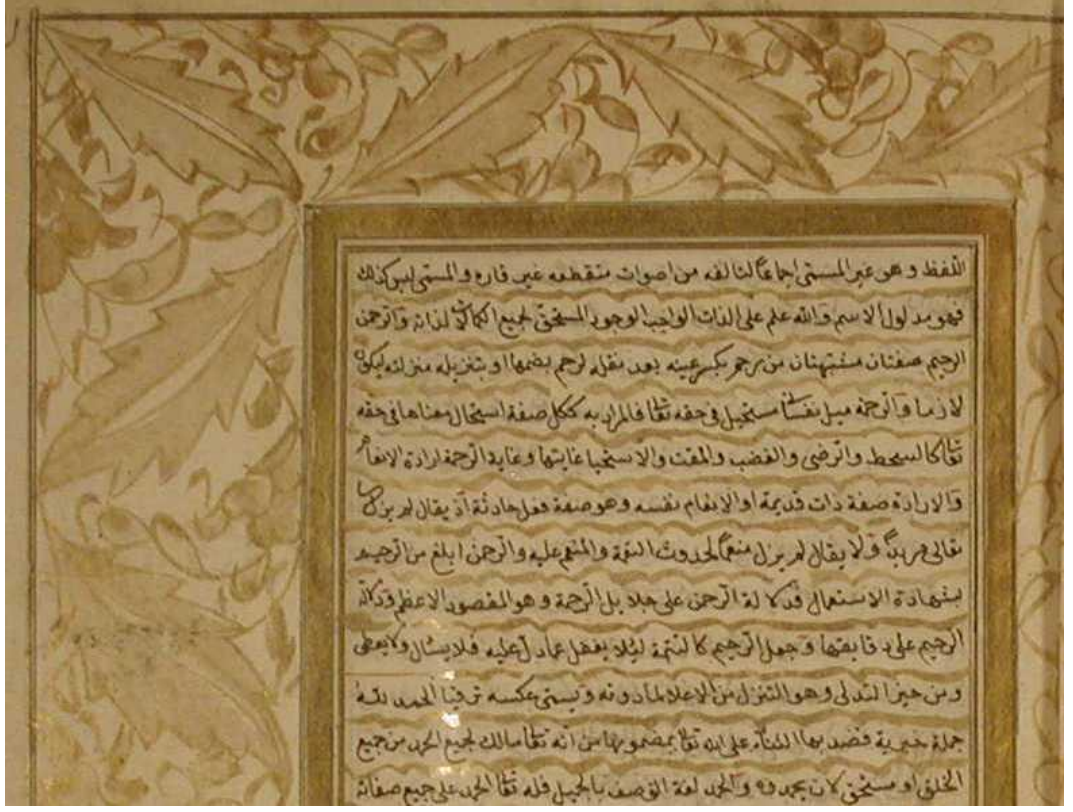 اللفظ وهو غير المسمى اجماعًا لتالفه من اصوات متقطعه غير قاره والمسمى ليس كذلك
فهو مدلول الاسم والله علم على الذات الواجب الوجود المستحق لجميع الكمالات لذاته والرحمن
الرحيم صفتان مشبهتان من رحم بكسر عينه بعد نقله لرحم بضمها او بتنزيله منزلته ليكون
لازما والرحمه ميل نفساني مستحيل في حقه تعا فالمراد به ككل صفة استحال معناها في حقه
تعا كالسخط والرضى والغضب والمقت والاستحيا غايتها وغاية الرحمة ارادة الانعام
والاراده صفة ذات قديمة او الانعام نفسه وهو صفة فعل حادثة اذ يقال لم يزل
تعالى مريدًا ولا يقال لم يزل منعمًا لحدوث النعمة والمنعم عليه والرحمن ابلغ من الرحيم
بشهادة الاستعمال فدلالة الرحمن على جلايل الرحمة وهو المقصود الاعظم ودلالة
الرحيم على دقايقها وجعل الرحيم كالتتمة ليلا يغفل عما دل عليه فلا يسال ولا يعطى
ومن حيز التدلى وهو التنزل من الاعلا لما دونه ويسمى عكسه ترقيا الحمد لله
جملة خبرية قصد بها الثناء على الله تعا بمضمونها من انه تعا مالك لجميع الحمد من جميع
الخلق او مستحق لان يحمدوه والحمد لغة الوصف بالجميل فله تعا الحمد على جميع صفاته